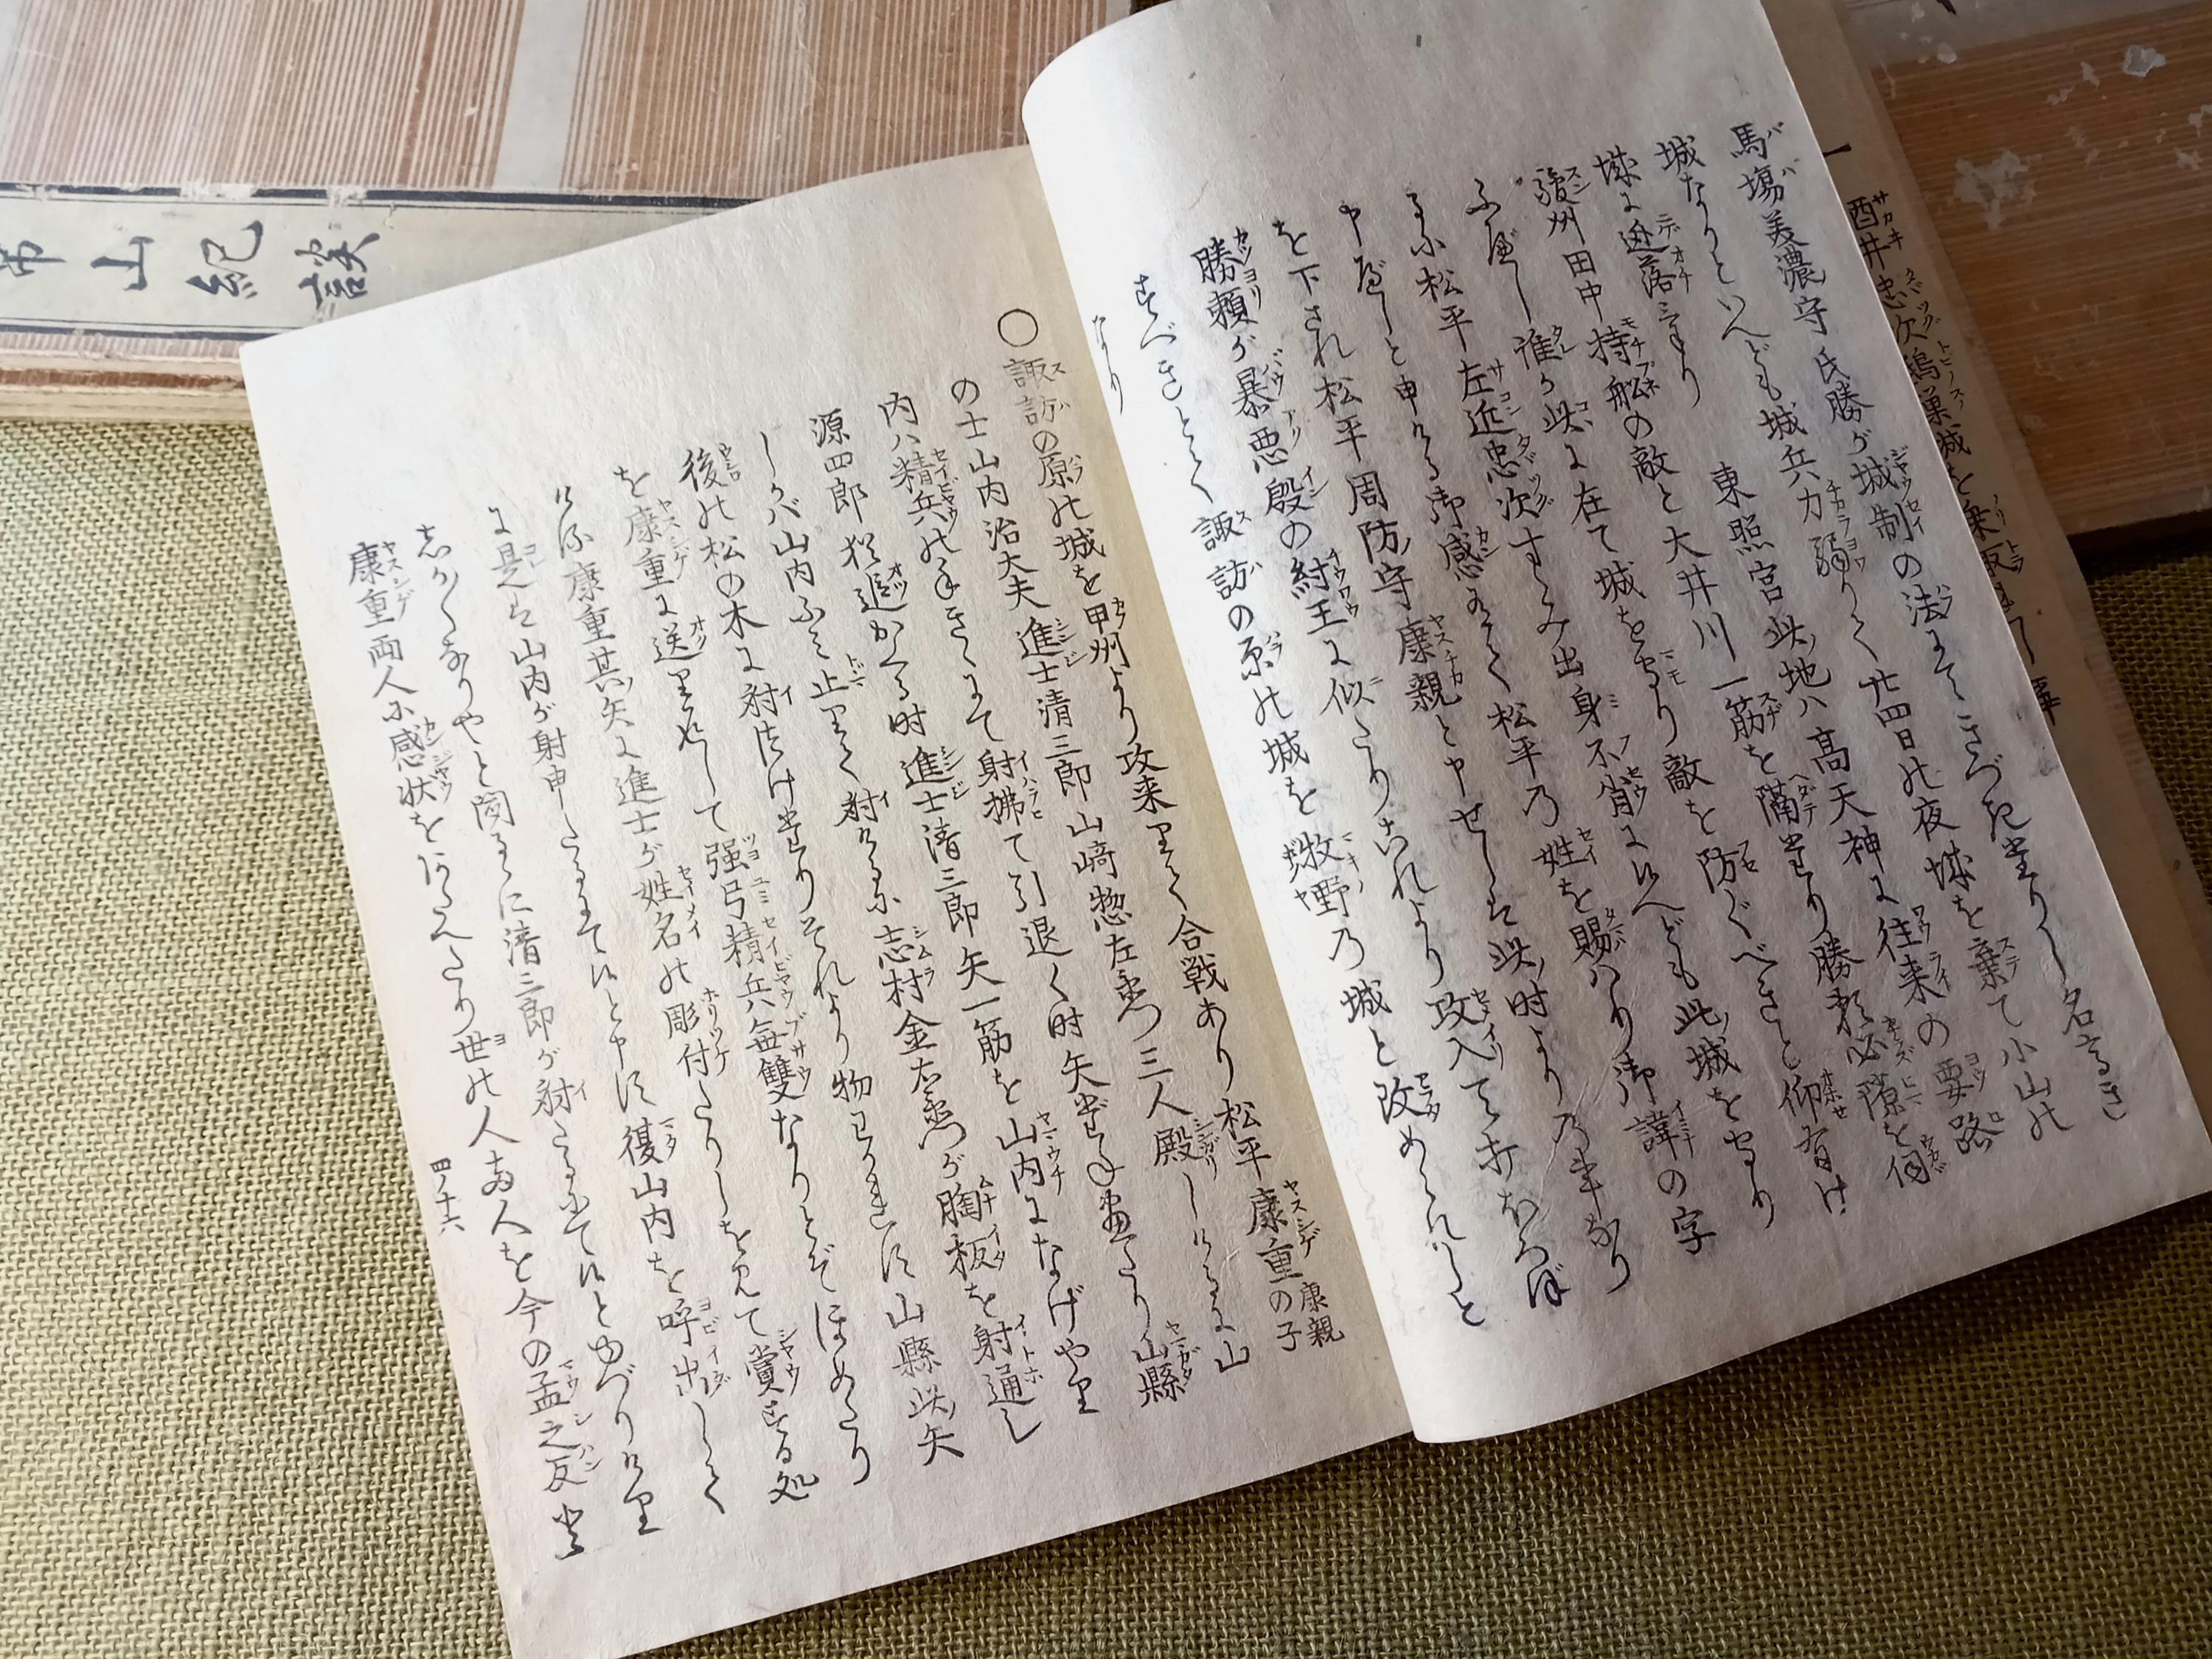 馬場美濃守氏勝が城制の法にてきづきたりし名高き
城なりといへども城兵力弱りて廿四日の夜城を棄て小山の
城に迯落ミけり 東照宮此地ハ高天神に往来の要路
駿州田中持船の敵と大井川一筋を隔たり勝頼必隙を伺
ふべし誰か此に在て城を守り敵を防ぐべきと仰有け
るに松平左近忠次すゝみ出身不肖に候へども此城を守り
申べしと申ける御感有て松平の姓を賜ハり御諱の字
を下され松平周防守康親と申せしは此時よりの事なり
勝頼が暴悪殷の紂王に似たりこれより攻入て打ほろぼ
すべきとて諏訪の原の城を牧野の城と改められしと
なり
○諏訪の原の城を甲州より攻来りて合戦あり松平康重康親の子
の士山内治大夫進士清三郎山崎惣左衛門三人殿しけるに山
内ハ精兵の手きゝにて射拂て引退く時矢だね尽たり山縣
源四郎猶追かくる時進士清三郎矢一筋を山内になげやり
しかバ山内ふミ止りて射けるに志村金右衛門が胸板を射通し
後の松の木に射付けたりそれより物わかれに山縣此矢
を康重に送りかへして强弓精兵無雙なりとぞほめたり
ける康重其矢に進士が姓名の彫付たりしを見て賞する処
に是は山内が射申したるにて候と申に復山内を呼出して
しか〳〵なりやと問るに清三郎が射たるにて候とゆづりけり
康重両人に感状をあたへたり世の人両人を今の孟之反と
四ノ十六
酒井忠次鳶巣城を乗取
山紀談